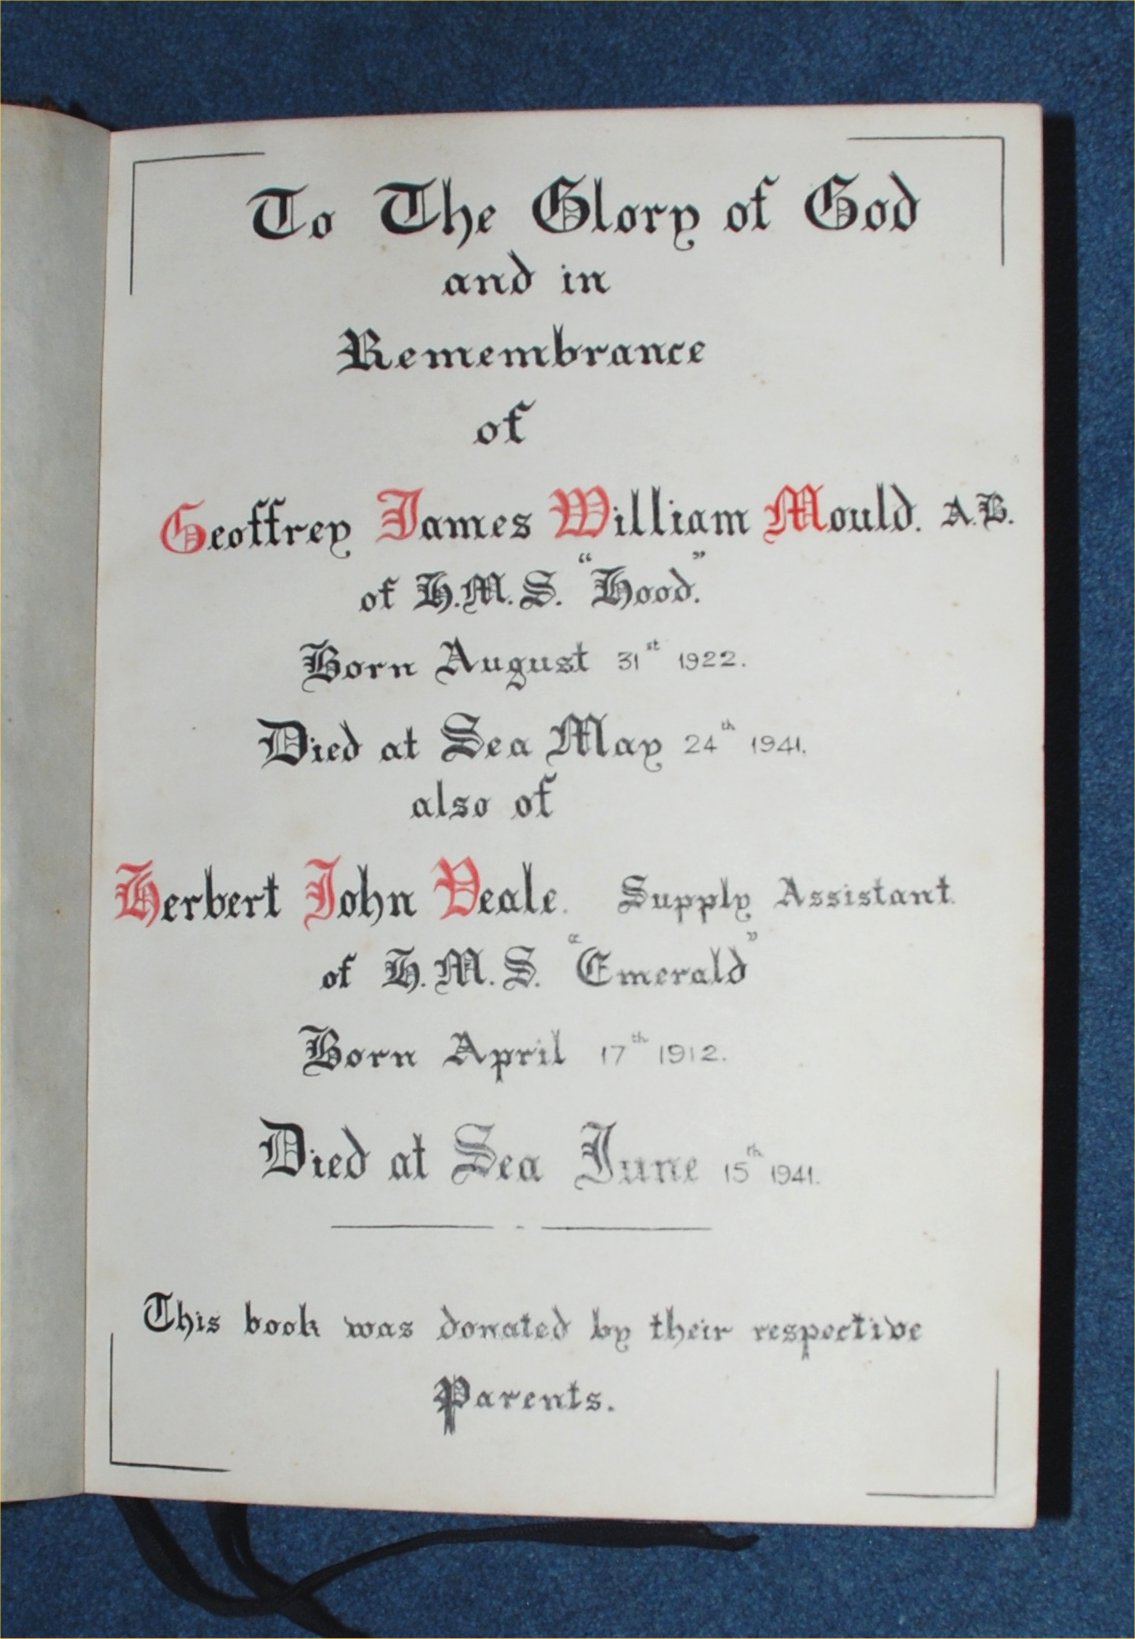 To The Glory of God
and in
Remembrance
of
Geoffrey James William Mould. A.B.
of H.M.S. "Hood."
Born August 31st 1922.
Died at Sea May 24th 1941.
also of
Herbert John Veale. Supply Assistant.
of H.M.S. "Emerald"
Born April 17th 1912.
Died at Sea June 15th 1941.
This book was donated by their respective
Parents.